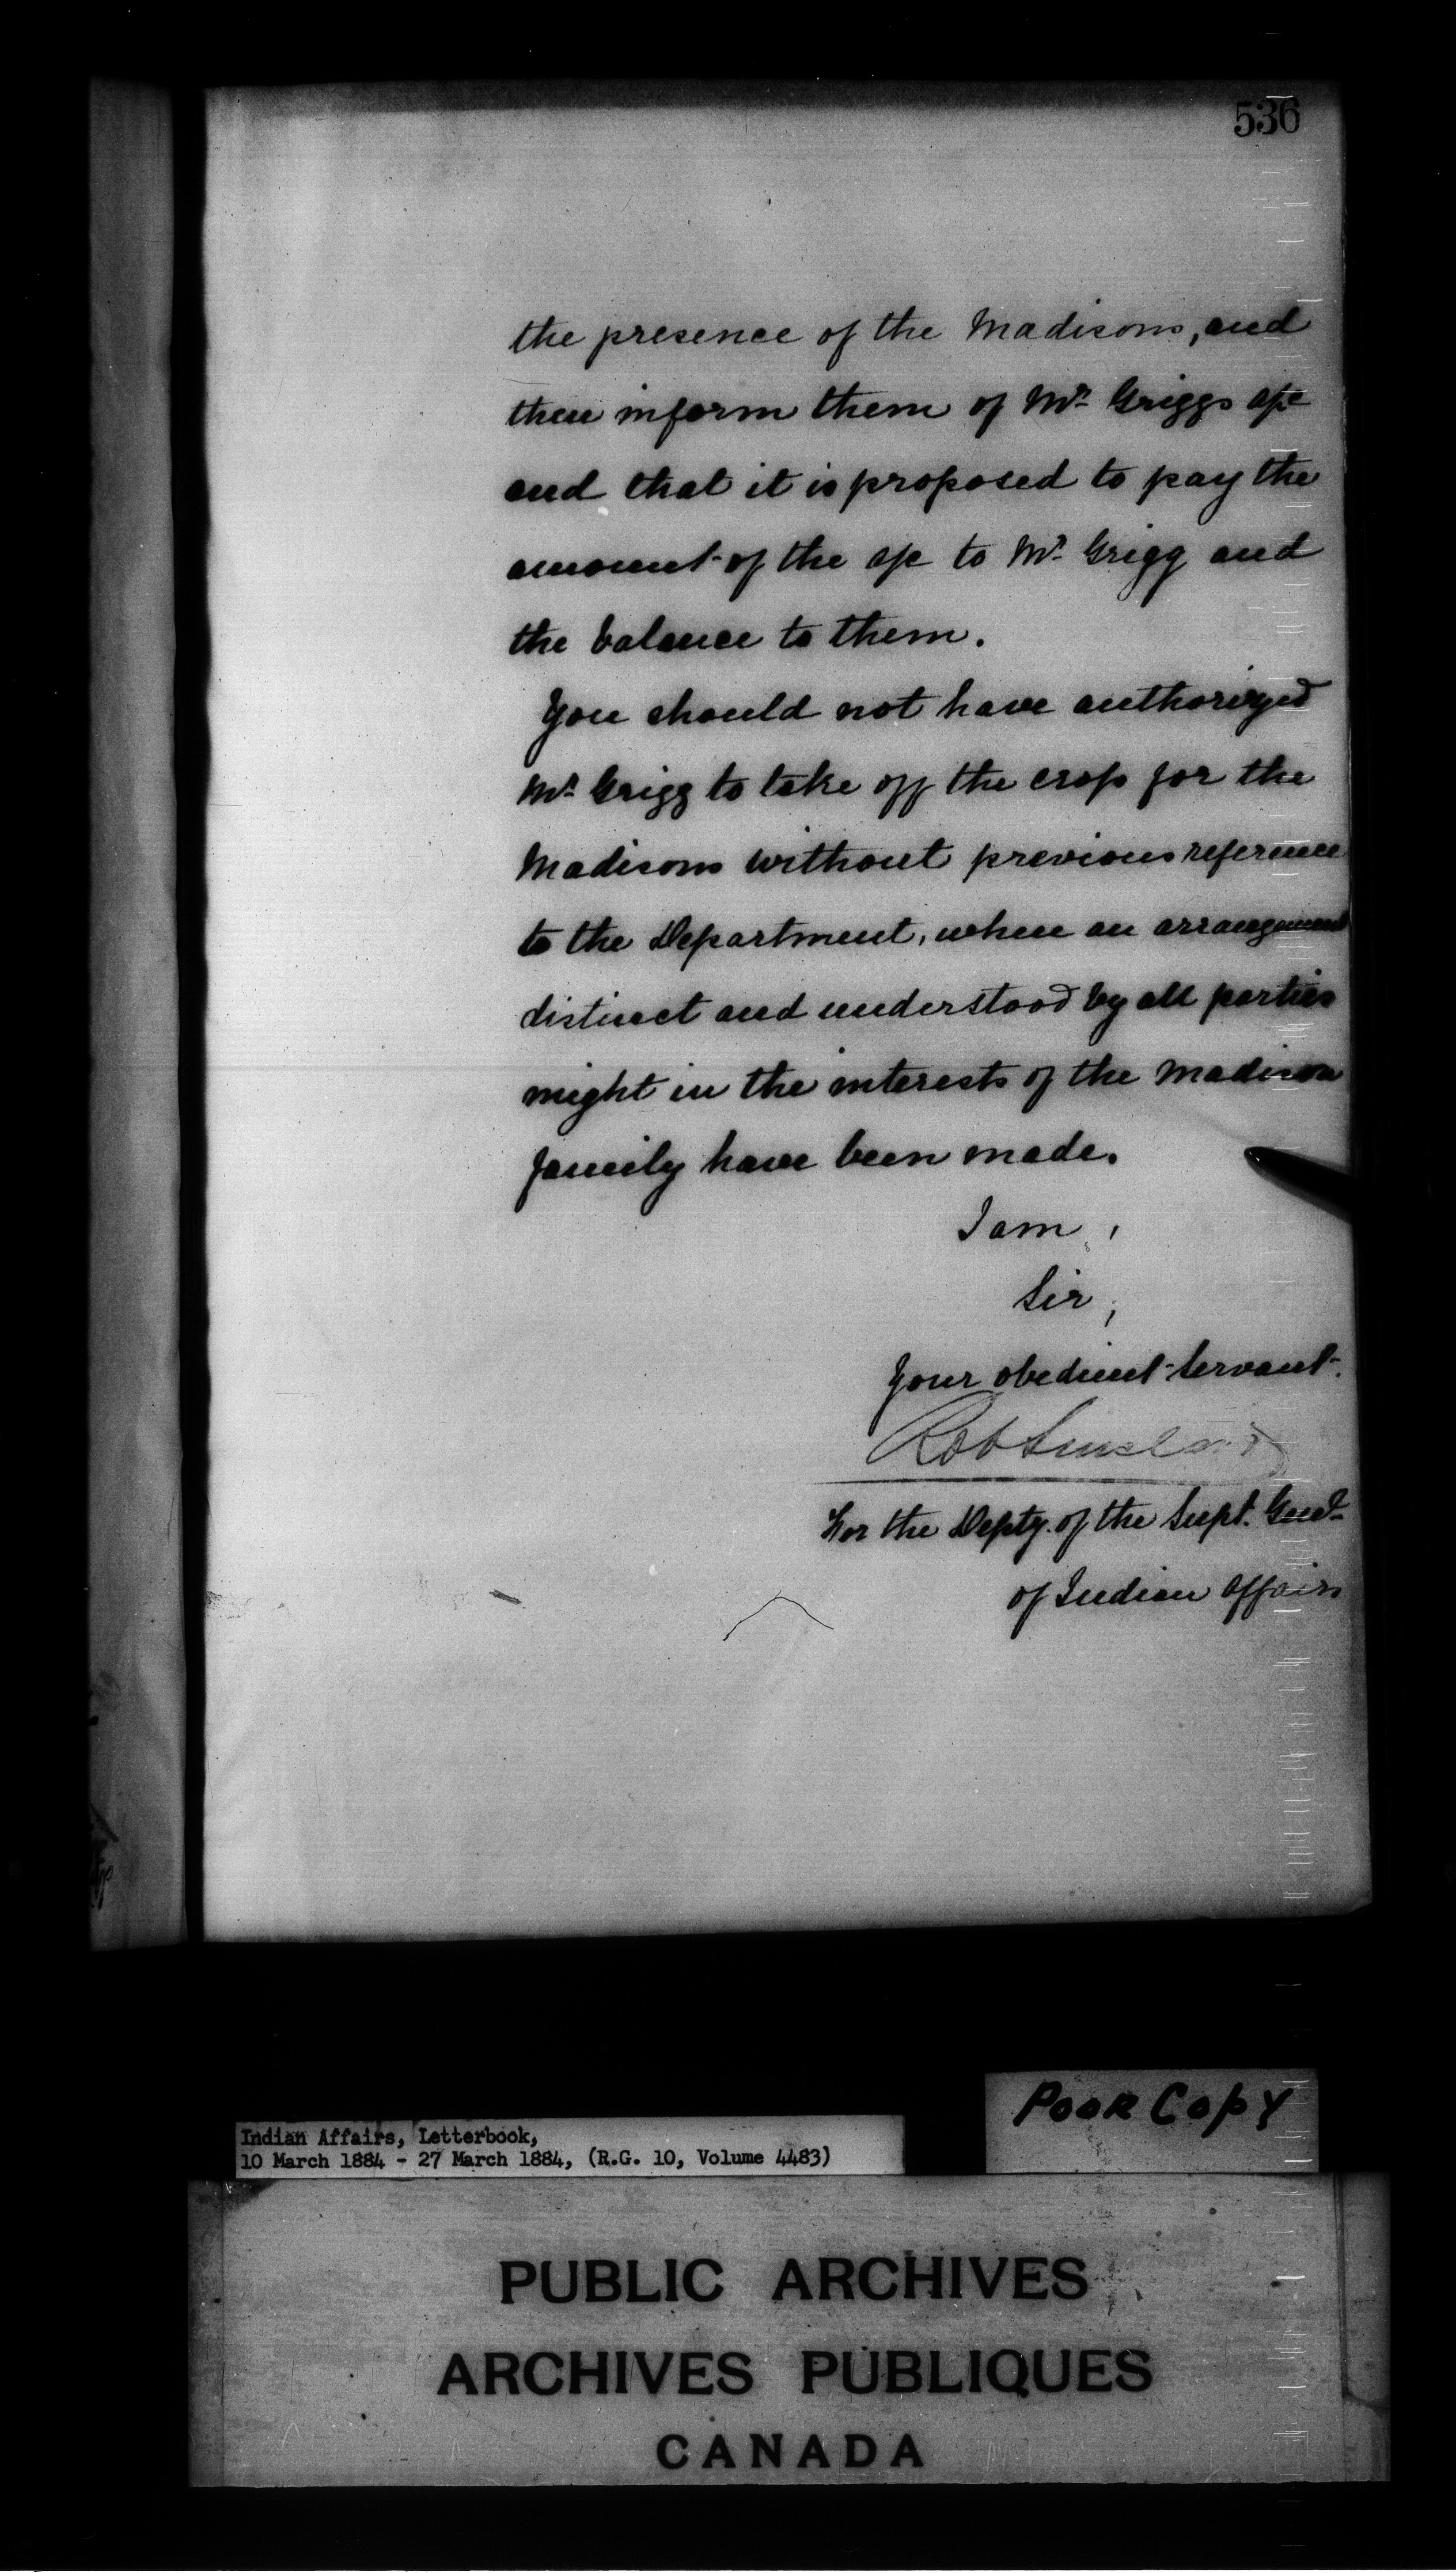 536
the presence of the Madisons, and
then inform them of Mr Griggs a/c
and that it is proposed to pay the
amount of the a/c to Mr Grigg and
the balance to them.
You should not have authorized
Mr Grigg to take off the crop for the
Madisons without previous reference
to the Department, when an arrangement
distinct and understood by all parties
might in the interests of the Madison
family have been made.
I am,
Sir,
Your obedient Servant.
Rob Sinclair
For the Depty. of the Supt. Genl
of Indian Affairs
Poor Copy
Indian Affairs, Letterbook,
10 March 1884 - 27 March 1884, (R.G. 10, Volume 4483)
PUBLIC ARCHIVES
ARCHIVES PUBLIQUES
CANADA